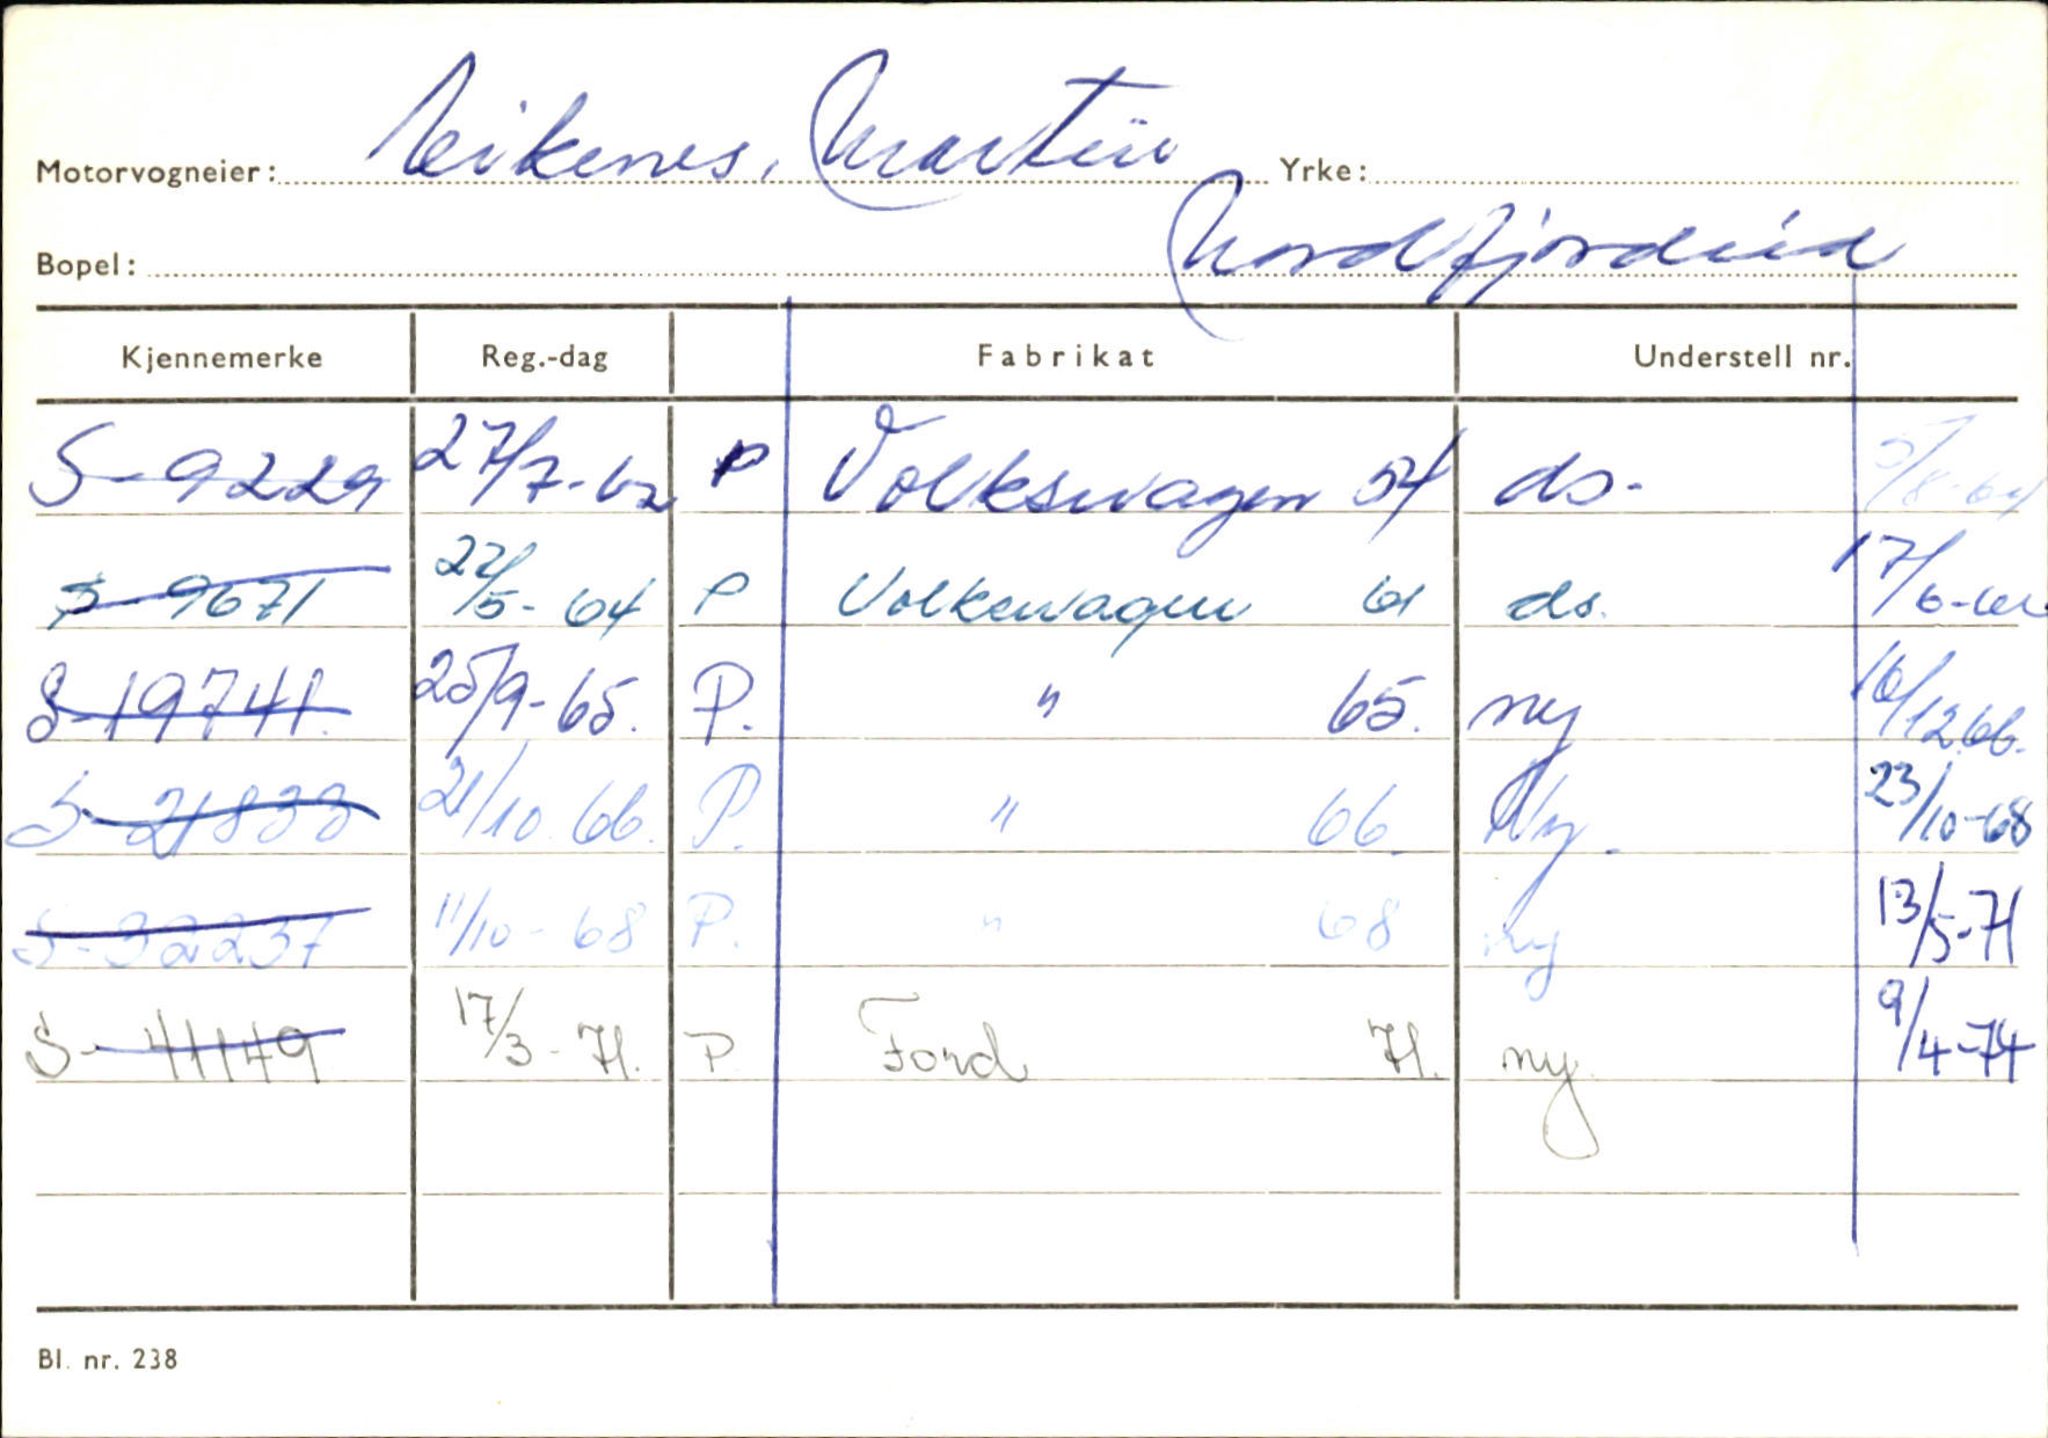 Motorvogneier: Leikenes, Martin Yrke:
Bopel: Nordfjordeid
Kjennemerke Reg.-dag Fabrikat Understell nr.
S-9229 27/7-62 P Volkswagen 54 ds. 5/8-64
S-9671 22/5-64 P Volkswagen 61 ds. 17/6-
S-19741. 25/9-65. P. " 65. ny 16/12.66.
S-21833 21/10.66. P. " 66. Ny. 23/10-68
S-32237 11/10-68 P. " 68 ny 13/5-71
S-41149 17/3-71. P Ford 71. ny. 9/4-74
Bl. nr. 238